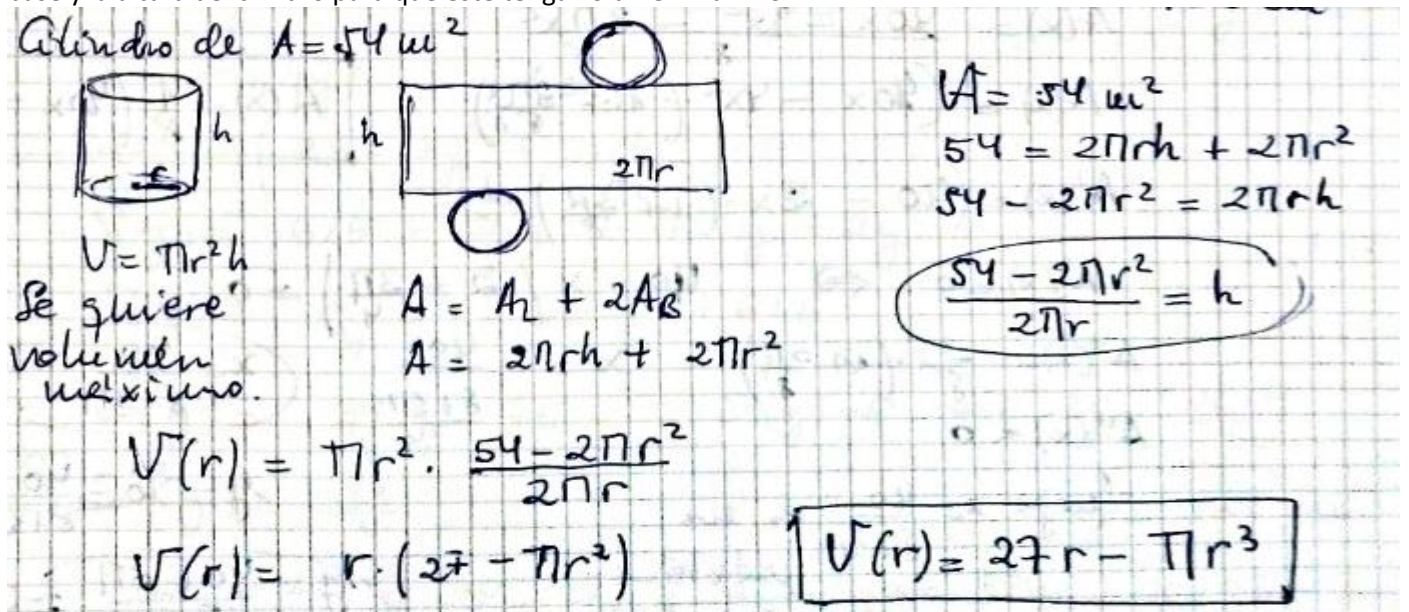 Cilindro de A = 54 m²
h
r
h
2πr
V = πr²h
Se quiere
volumen
máximo.
A = A_L + 2A_B
A = 2πrh + 2πr²
A = 54 m²
54 = 2πrh + 2πr²
54 - 2πr² = 2πrh
(54 - 2πr²)/(2πr) = h
V(r) = πr² · (54 - 2πr²)/(2πr)
V(r) = r · (27 - πr²)
V(r) = 27r - πr³